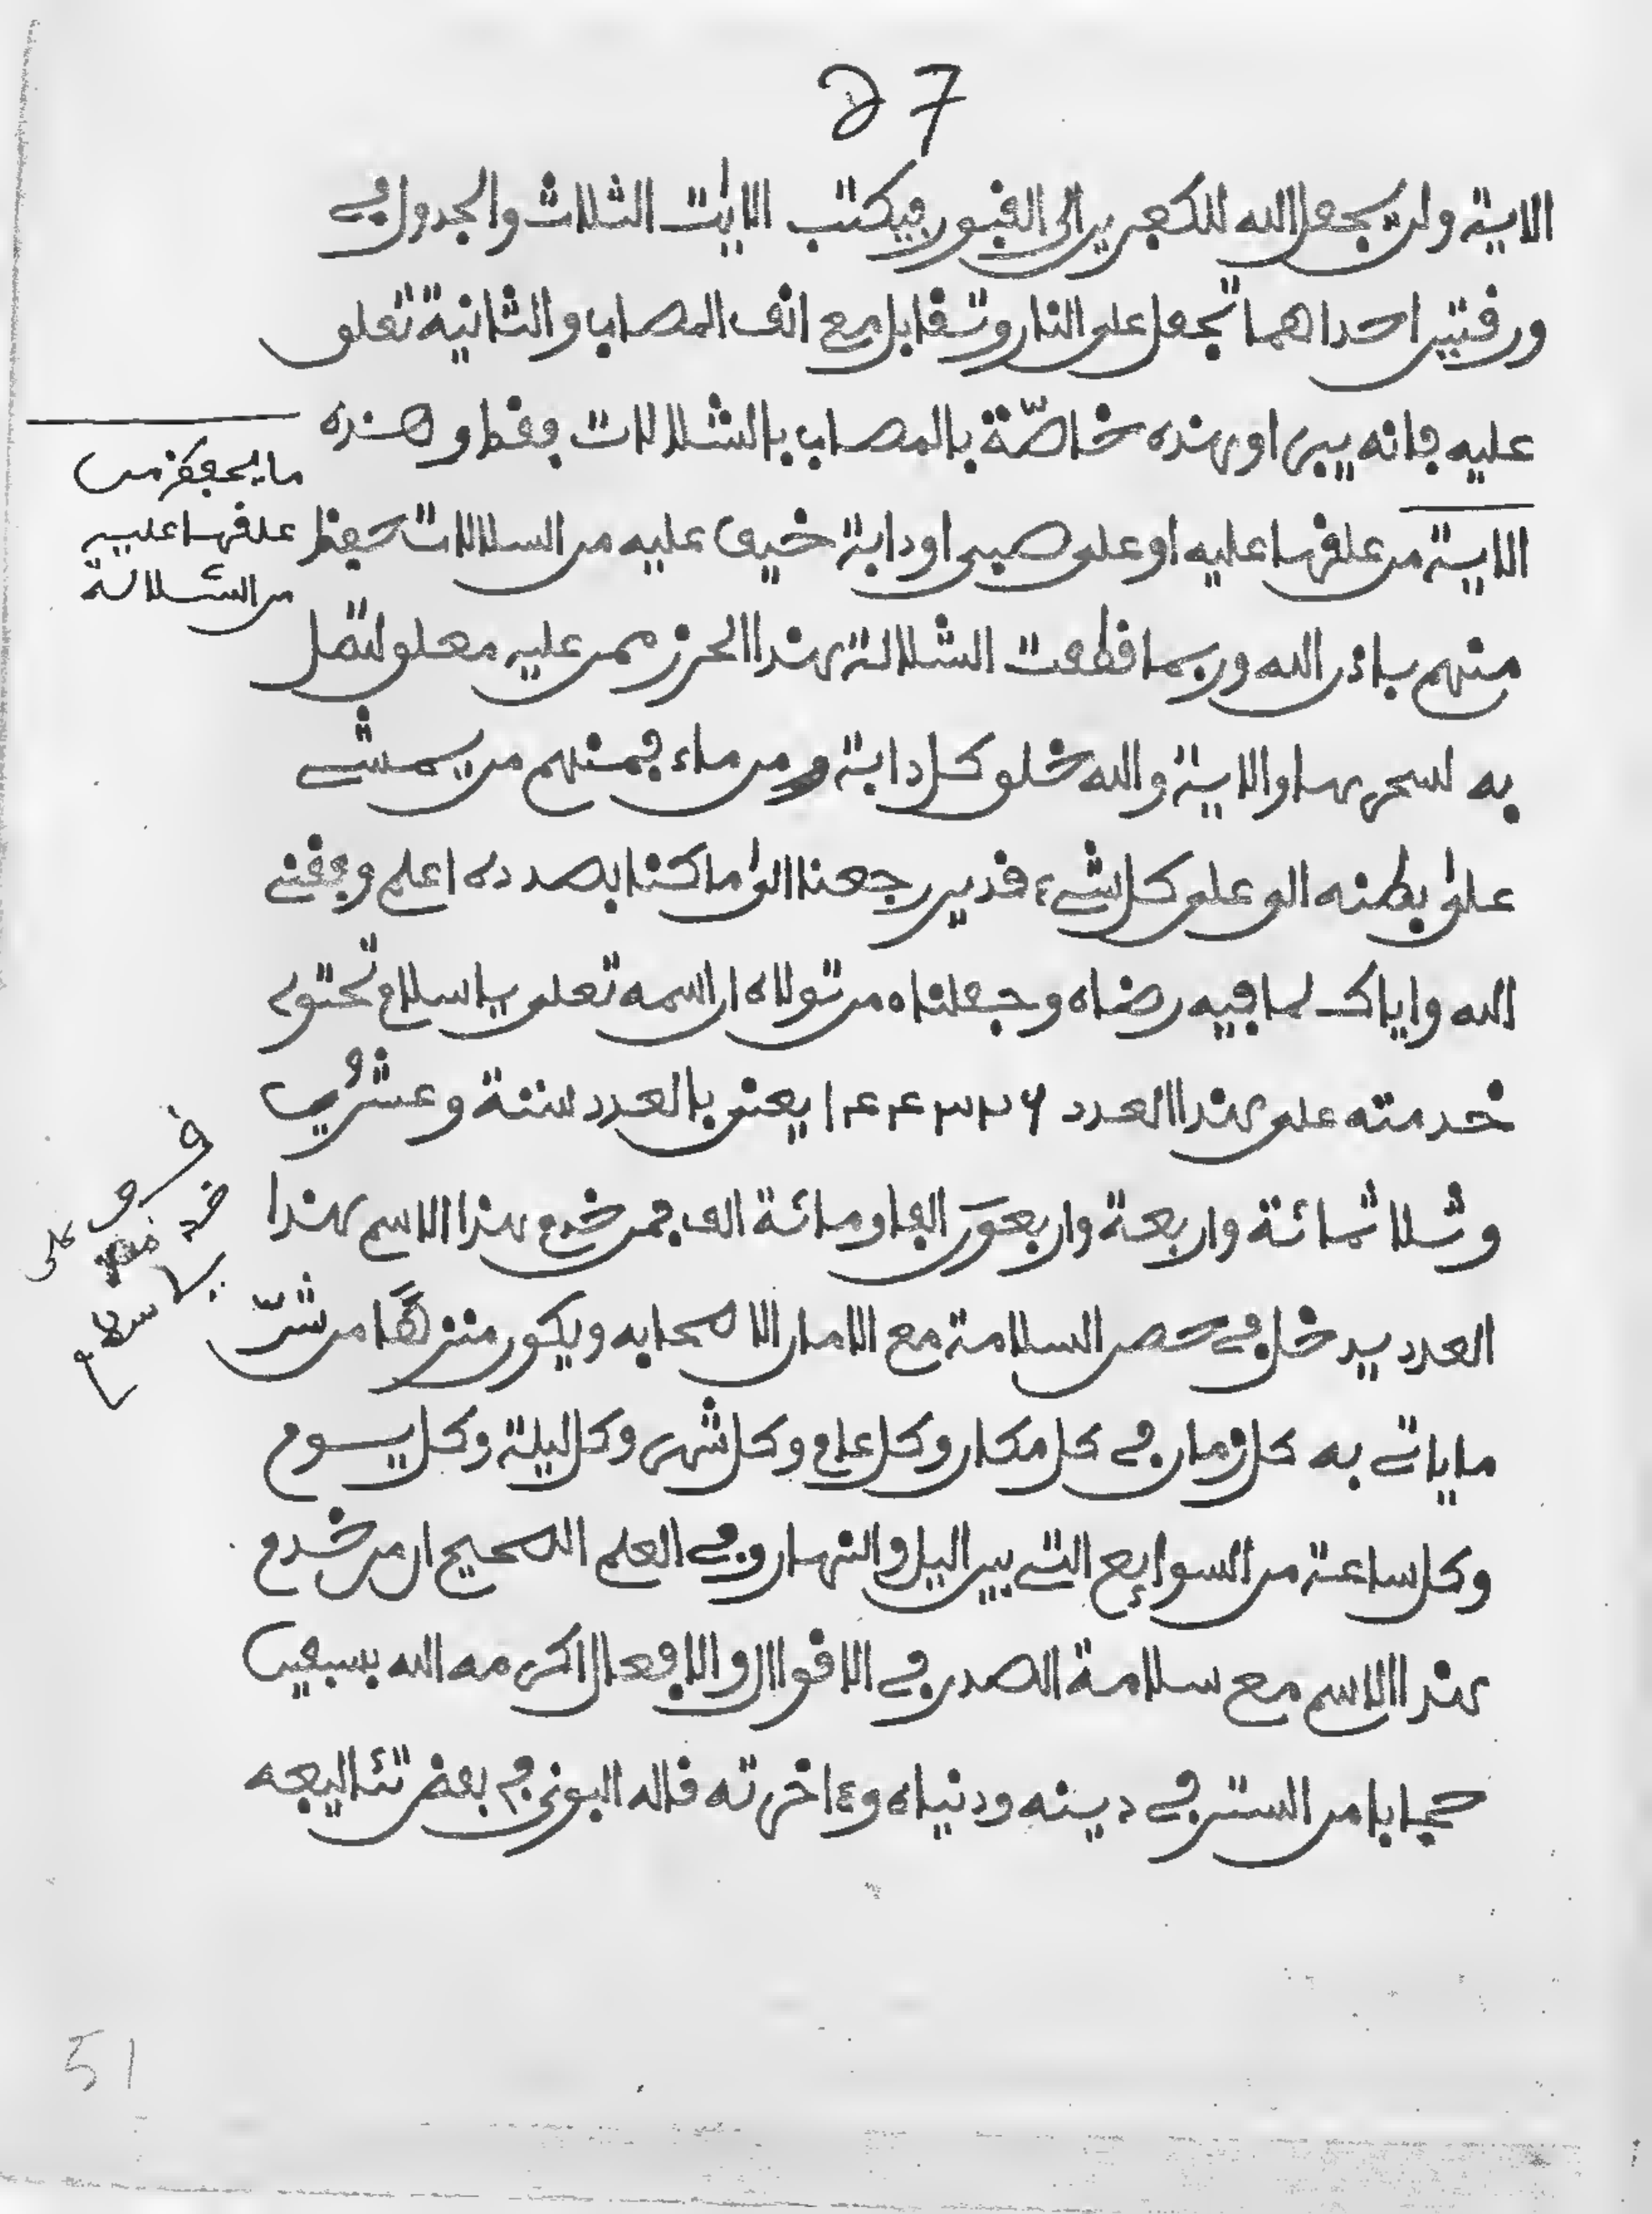 57
الاية ولن يجعل الله للكفرين الى القبور فيكتب الايت الثلاث والجدول في
ورقتين احداهما تجعل على النار وتقابل مع انف المصاب والثانية تعلق
عليه فانه يبرا وهذه خاصّة بالمصاب بالشلالات فقط وهذه
الاية من علقها عليه او على صبي او دابة خيف عليه من السلالات حفظ
منهم باذن الله وربما قطعت الشلالة هذا الحرز ممن عليه معلق لتصل
به لسحرها والاية والله خلق كل دابة من ماء فمنهم من يمشي
على بطنه الى على كل شيء قدير رجعنا الى ما كنا بصدده اعلم وفقني
الله واياك لما فيه رضاه وجعلناه من تولاه ان اسمه تعلى يا سلام تحتوي
خدمته على هذا العدد ١٤٤٣٢٦ يعني بالعدد ستة وعشرين
وثلاثمائة واربعة واربعون الفا ومائة الف فمن خدم هذا الاسم هذا
العدد يدخل في حصن السلامة مع الامان الا صحابه ويكون منزهًا من شرّ
ما ياتي به كل زمان في كل مكان وكل عام وكل شهر وكل ليلة وكل يوم
وكل ساعة من السوايع التي بين اليل والنهار وفي العلم الصحيح ان من خدم
هذا الاسم مع سلامة الصدر في الاقوال والافعال اكرمه الله بسبعين
حجابا من الستر في دينه ودنياه وءاخرته قاله البوني في بعض تئاليفه
ما يحفظ من
علقها عليه
من الشلالة
على
يا سلام
51